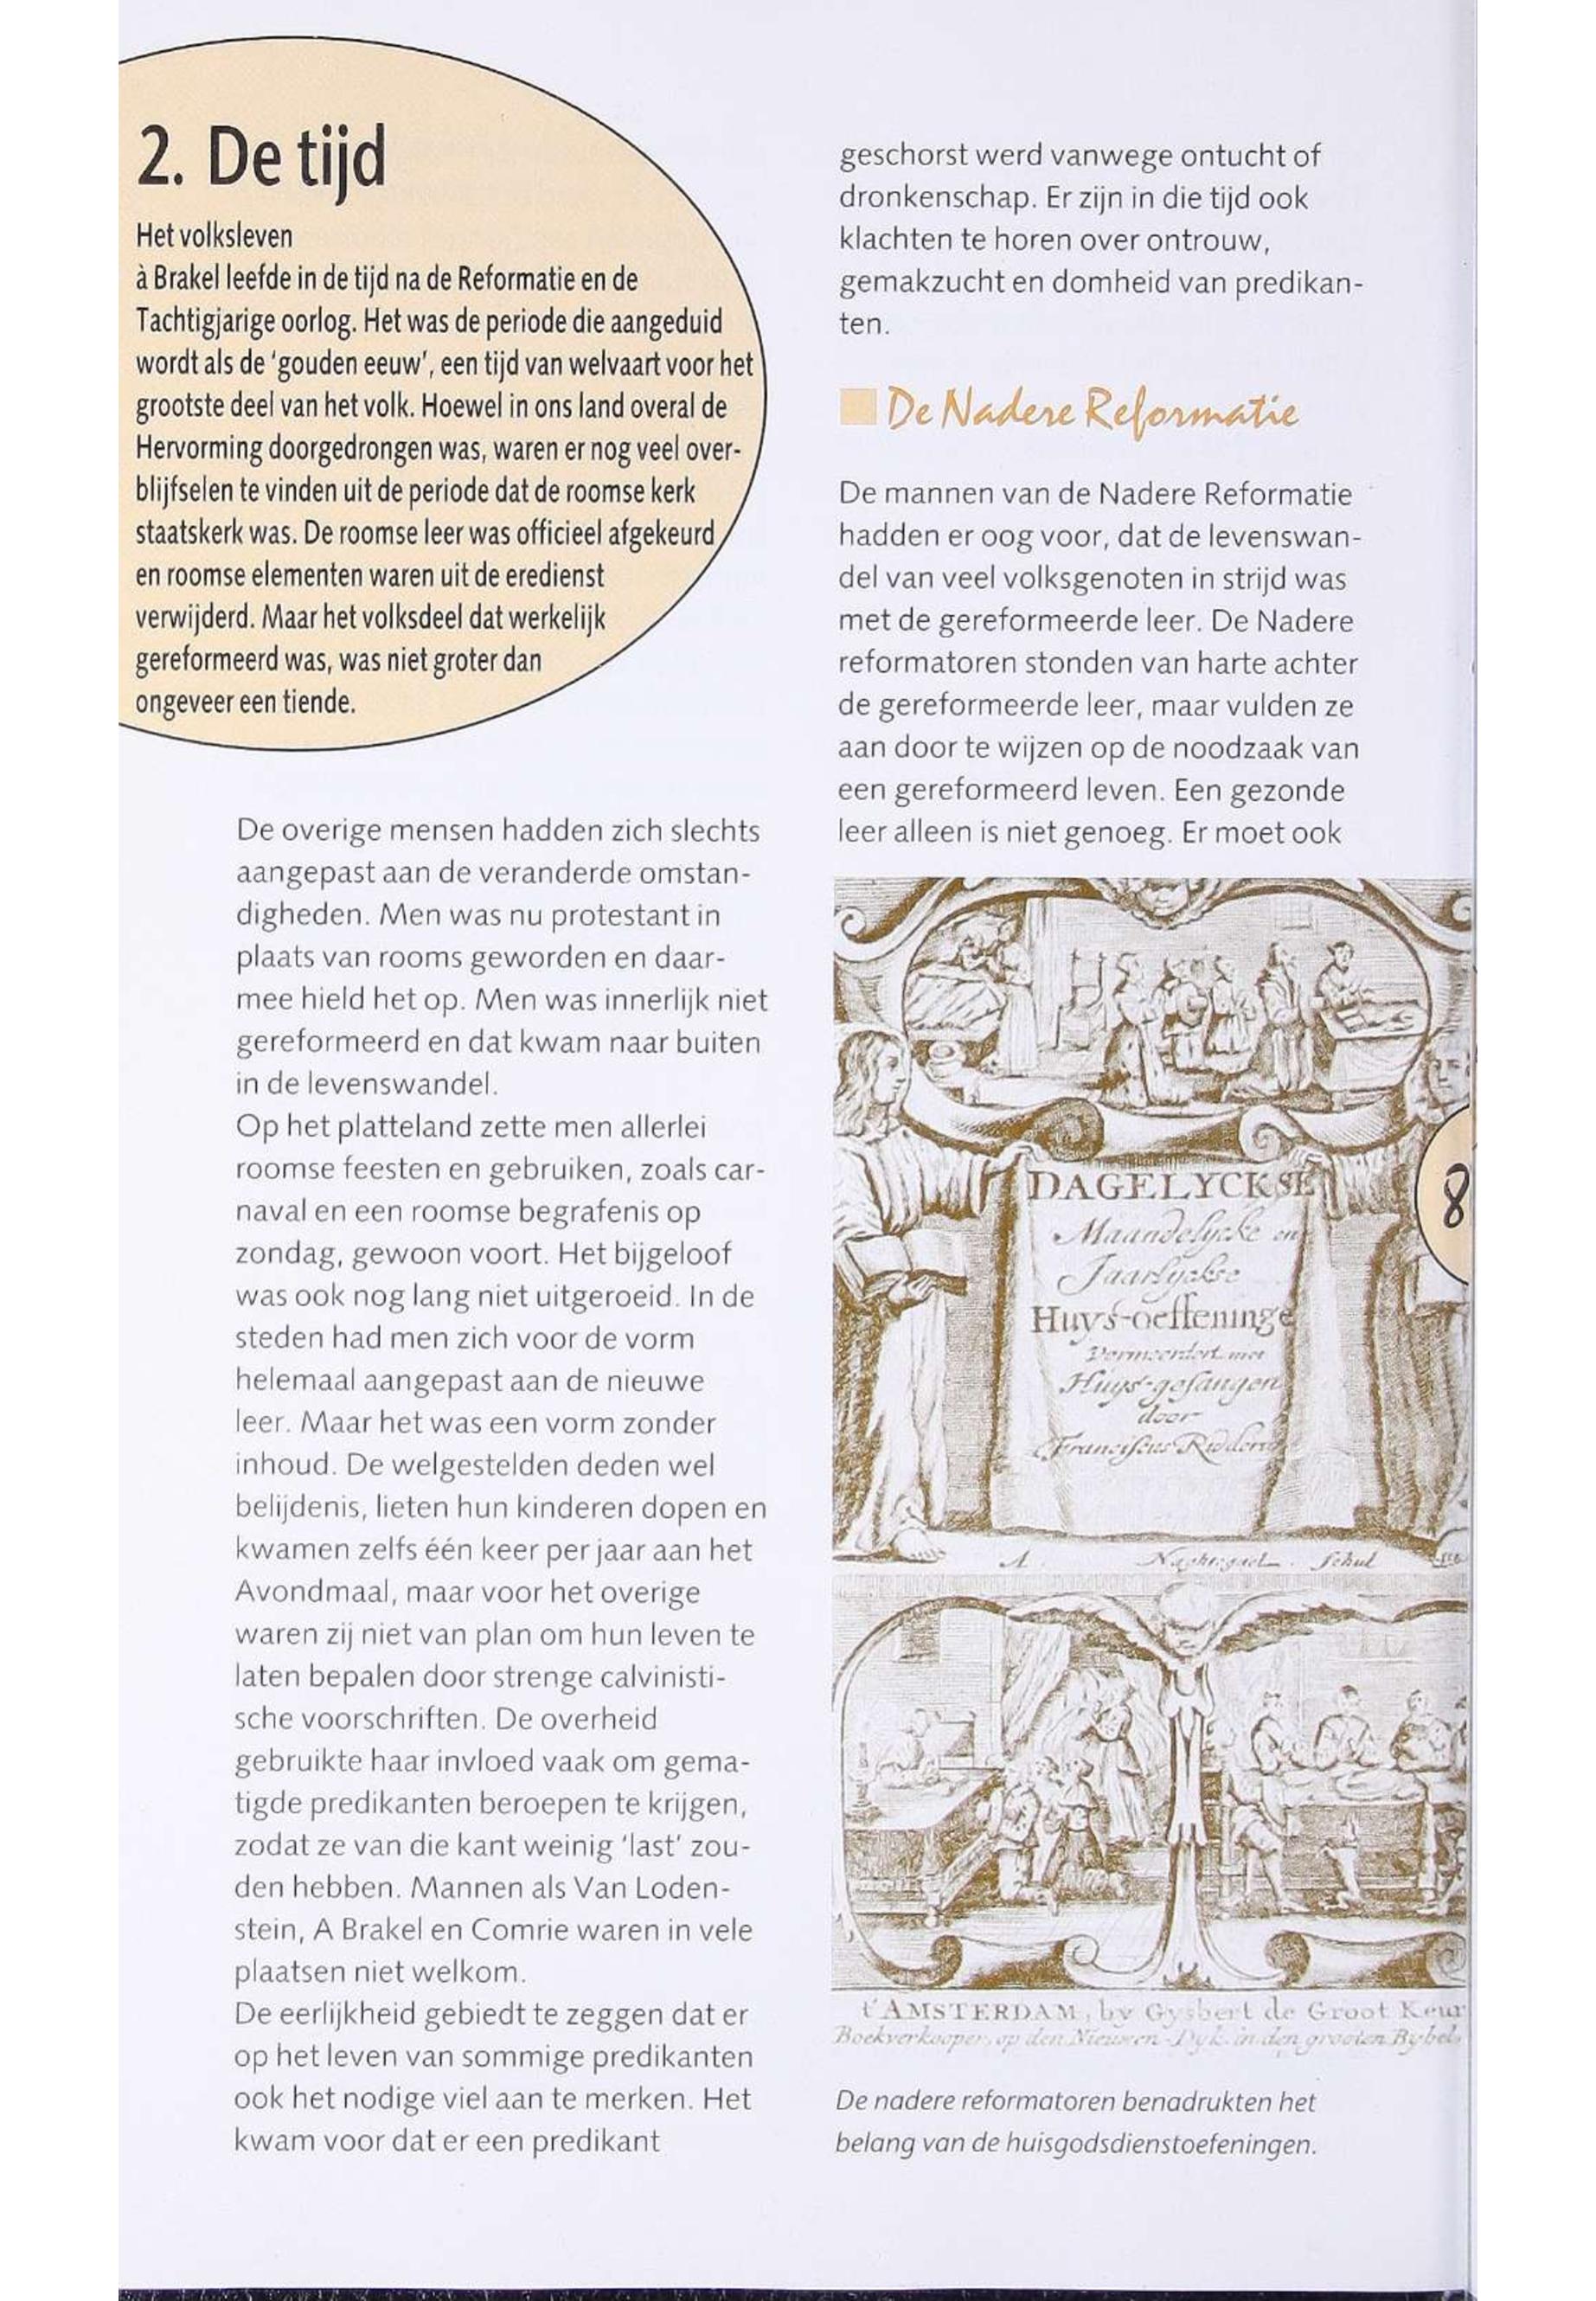 2. De tijd
Het volksleven
à Brakel leefde in de tijd na de Reformatie en de
Tachtigjarige oorlog. Het was de periode die aangeduid
wordt als de 'gouden eeuw', een tijd van welvaart voor het
grootste deel van het volk. Hoewel in ons land overal de
Hervorming doorgedrongen was, waren er nog veel over-
blijfselen te vinden uit de periode dat de roomse kerk
staatskerk was. De roomse leer was officieel afgekeurd
en roomse elementen waren uit de eredienst
verwijderd. Maar het volksdeel dat werkelijk
gereformeerd was, was niet groter dan
ongeveer een tiende.
De overige mensen hadden zich slechts
aangepast aan de veranderde omstan-
digheden. Men was nu protestant in
plaats van rooms geworden en daar-
mee hield het op. Men was innerlijk niet
gereformeerd en dat kwam naar buiten
in de levenswandel.
Op het platteland zette men allerlei
roomse feesten en gebruiken, zoals car-
naval en een roomse begrafenis op
zondag, gewoon voort. Het bijgeloof
was ook nog lang niet uitgeroeid. In de
steden had men zich voor de vorm
helemaal aangepast aan de nieuwe
leer. Maar het was een vorm zonder
inhoud. De welgestelden deden wel
belijdenis, lieten hun kinderen dopen en
kwamen zelfs één keer per jaar aan het
Avondmaal, maar voor het overige
waren zij niet van plan om hun leven te
laten bepalen door strenge calvinisti-
sche voorschriften. De overheid
gebruikte haar invloed vaak om gema-
tigde predikanten beroepen te krijgen,
zodat ze van die kant weinig 'last' zou-
den hebben. Mannen als Van Loden-
stein, A Brakel en Comrie waren in vele
plaatsen niet welkom.
De eerlijkheid gebiedt te zeggen dat er
op het leven van sommige predikanten
ook het nodige viel aan te merken. Het
kwam voor dat er een predikant
geschorst werd vanwege ontucht of
dronkenschap. Er zijn in die tijd ook
klachten te horen over ontrouw,
gemakzucht en domheid van predikan-
ten.
De Nadere Reformatie
De mannen van de Nadere Reformatie
hadden er oog voor, dat de levenswan-
del van veel volksgenoten in strijd was
met de gereformeerde leer. De Nadere
reformatoren stonden van harte achter
de gereformeerde leer, maar vulden ze
aan door te wijzen op de noodzaak van
een gereformeerd leven. Een gezonde
leer alleen is niet genoeg. Er moet ook
DAGELYCKSE
Maandelycke en
Jaarlyckse
Huys-oeffeninge
Vermeerdert met
Huys-gesangen
door
Franciscus Ridderus
8
t'AMSTERDAM, by Gysbert de Groot Keur
Boekverkooper, op den Nieuwen-Dyk in den grooten Bybel
De nadere reformatoren benadrukten het
belang van de huisgodsdienstoefeningen.